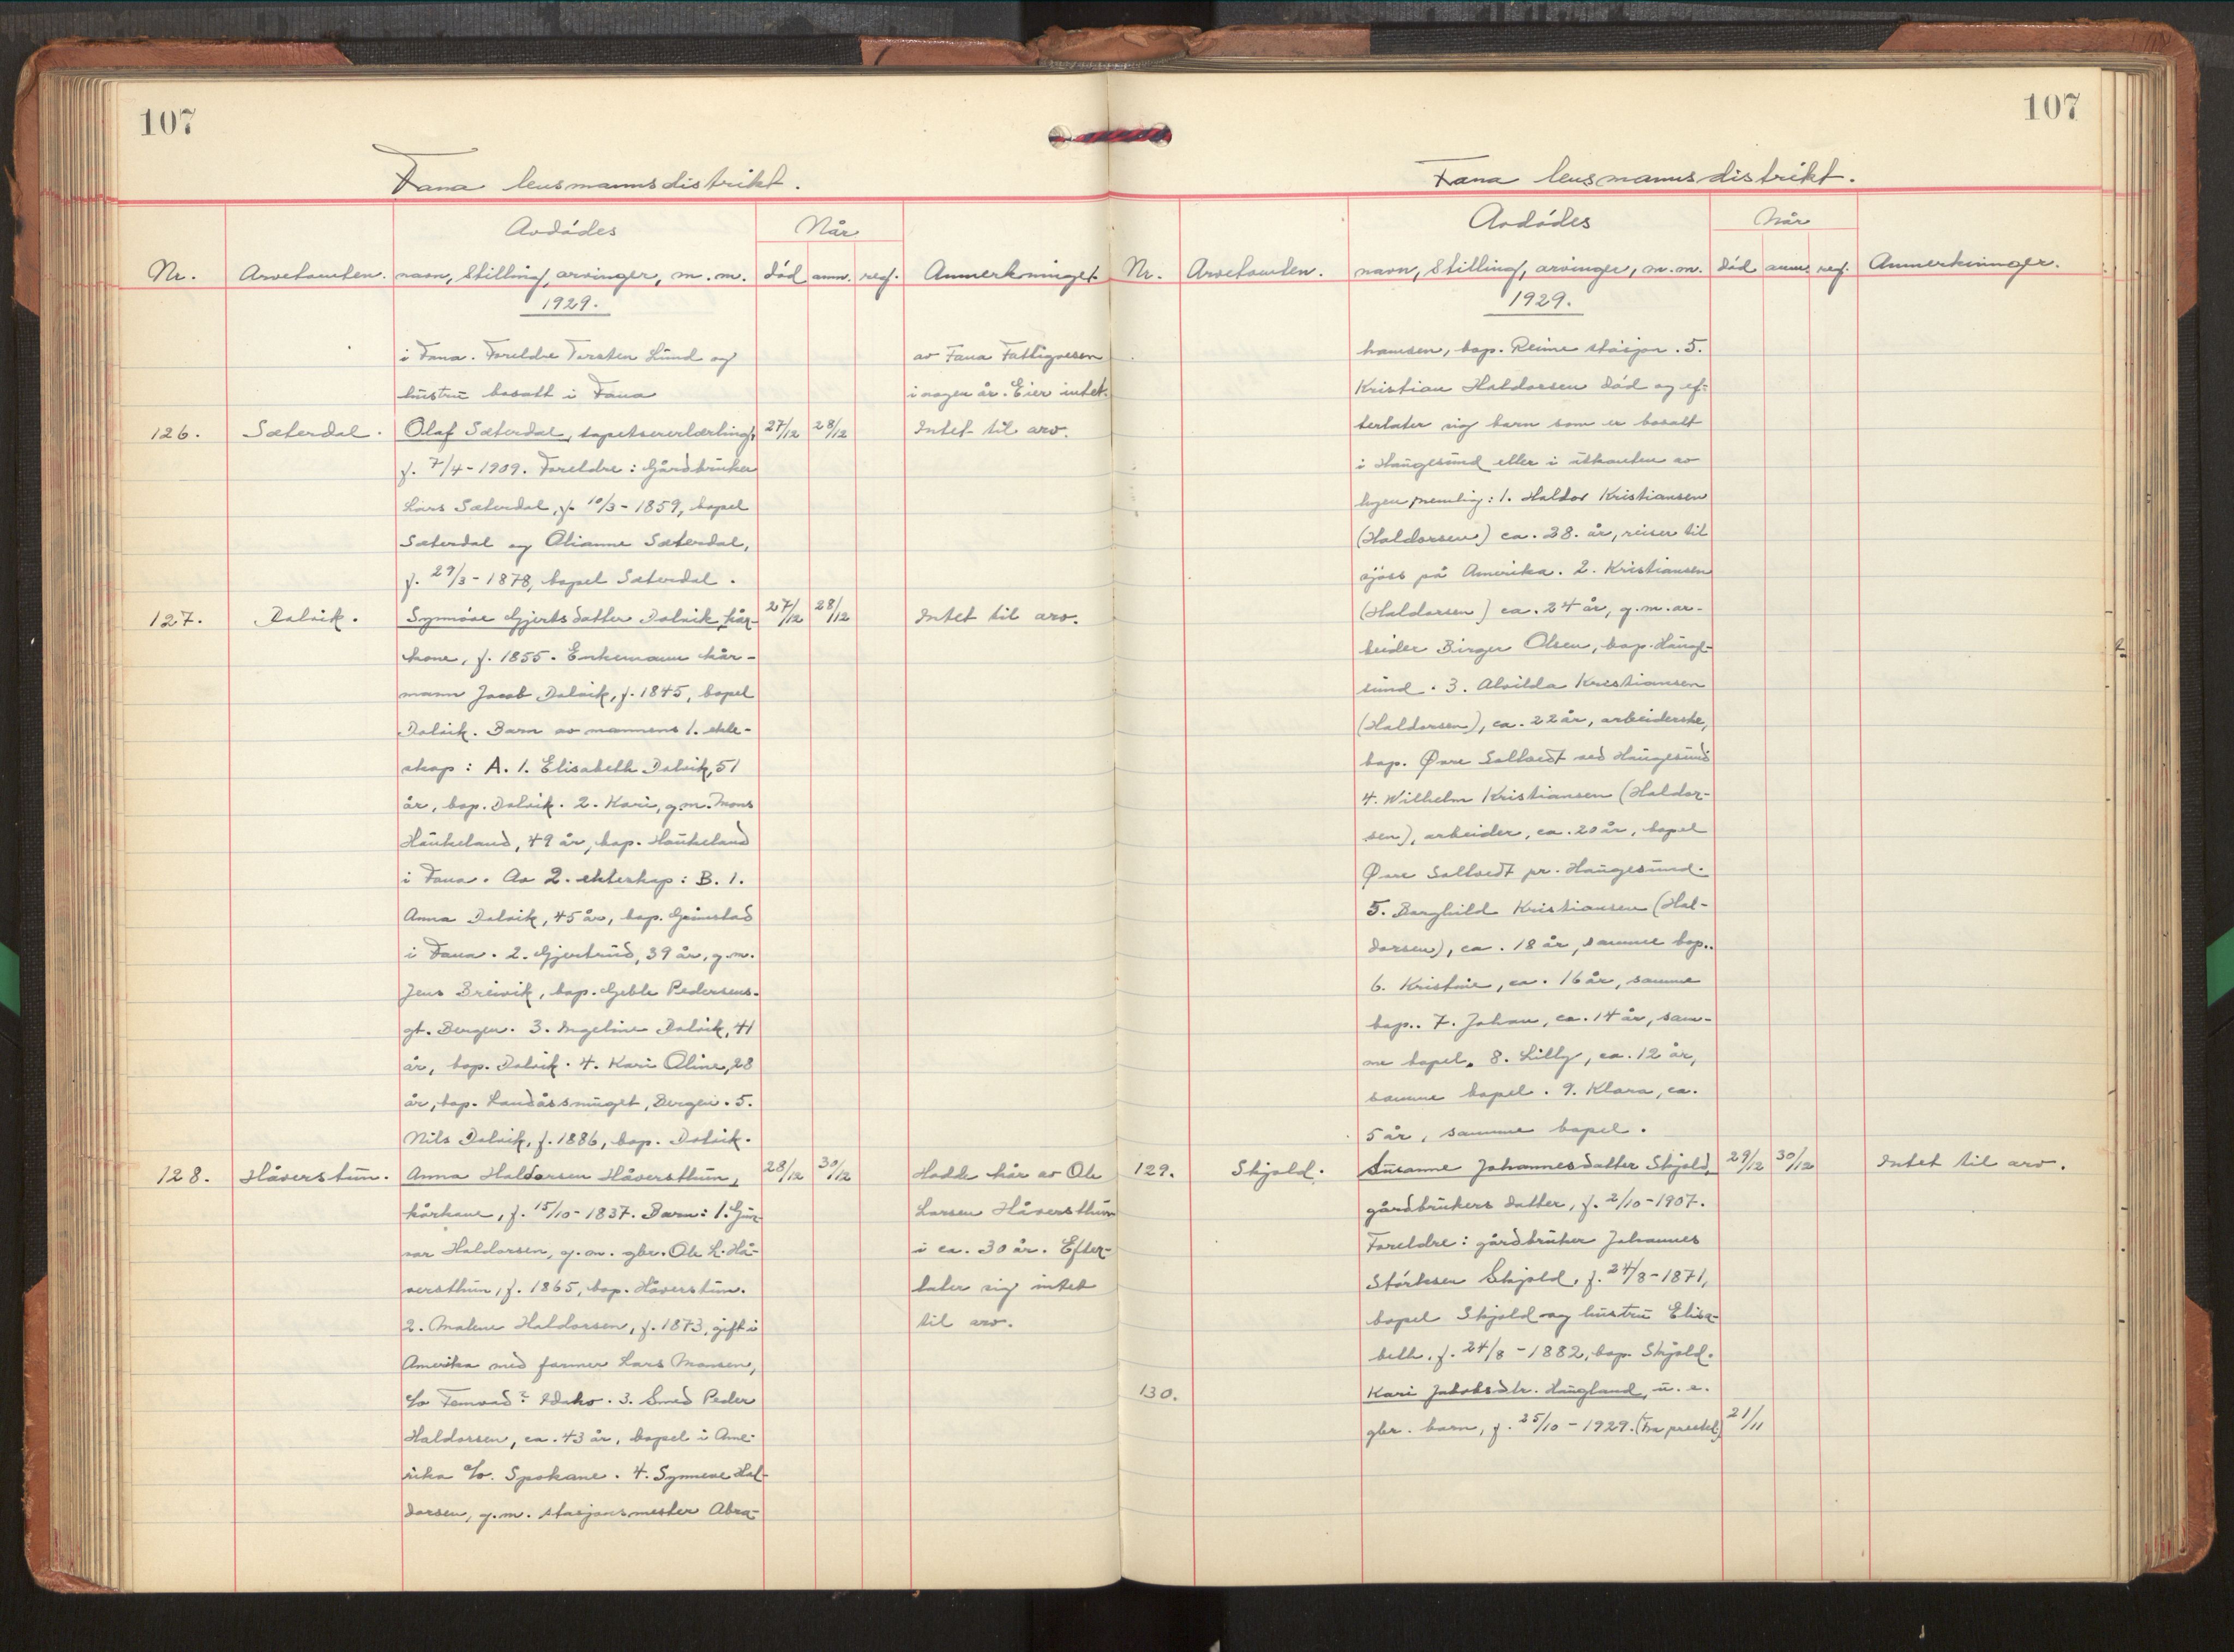 107
Fana lensmannsdistrikt.
Avdødes
Når
Nr. Arvetomten. navn, stilling, arvinger, m.m. død anm. reg. Anmerkninger.
1929.
i Fana. Foreldre Torsten Lund og
av Fana Fattigvesen
hustru bosatt i Fana
i nogen år. Eier intet.
126. Sæterdal. Olaf Sæterdal, tapetsererlærling, 27/12 28/12 Intet til arv.
f. 7/4-1909. Foreldre: Gårdbruker
Lars Sæterdal, f. 10/3-1859, bopel
Sæterdal og Alianne Sæterdal,
f. 29/3-1878, bopel Sæterdal.
127. Dalvik. Synnøve Gjertsdatter Dalvik, kår- 27/12 28/12 Intet til arv.
kone, f. 1855. Enkemann kår-
mann Jacob Dalvik, f. 1845, bopel
Dalvik. Barn av mannens 1. ekte-
skap: A. 1. Elisabeth Dalvik, 51
år, bop. Dalvik. 2. Kari, g.m. Mons
Haukeland, 49 år, bop. Haukeland
i Fana. Av 2. ekteskap: B. 1.
Anna Dalvik, 45 år, bop. Grimstad
i Fana. 2. Gjertrud, 39 år, g.m.
Jens Breivik, bop. Geble Pedersens-
gt. Bergen. 3. Ingeline Dalvik, 41
år, bop. Dalvik. 4. Kari Oline, 28
år, bop. Landåssmuget, Bergen. 5.
Nils Dalvik, f. 1886, bop. Dalvik.
128. Håverstun. Anna Haldorsen Håversthun, 28/12 30/12 Hadde kår av Ole
kårkone, f. 15/10-1837. Barn: 1. Gun-
Larsen Håversthun
var Haldorsen, g.m. gbr. Ole L. Hå-
i ca. 30 år. Efter-
versthun, f. 1865, bop. Håverstun.
later sig intet
2. Malene Haldorsen, f. 1873, gift i
til arv.
Amerika med farmer Lars Monsen,
c/o Fenwad? Idaho. 3. Smed Peder
Haldorsen, ca. 43 år, bopel i Ame-
rika c/o. Spokane. 4. Synneve Hal-
dorsen, g.m. stasjonsmester Abra-
107
Fana lensmannsdistrikt.
Avdødes
Når
Nr. Arvetomten. navn, stilling, arvinger, m.m. død anm. reg. Anmerkninger.
1929.
hamsen, bop. Reime stasjon. 5.
Kristian Haldorsen død og ef-
terlater sig barn som er bosatt
i Haugesund eller i utkanten av
byen, nemlig: 1. Haldor Kristiansen
(Haldorsen) ca. 38. år, reiser til
sjøss på Amerika. 2. Kristiansen
(Haldorsen) ca. 24 år, g.m. ar-
beider Birger Olsen, bop. Hauge-
sund. 3. Alvilda Kristiansen
(Haldorsen), ca. 22 år, arbeiderske,
bop. Øvre Saltvedt ved Haugesund
4. Wilhelm Kristiansen (Haldor-
sen), arbeider, ca. 20 år, bopel
Øvre Saltvedt pr. Haugesund.
5. Borghild Kristiansen (Hal-
dorsen), ca. 18 år, samme bop..
6. Kristine, ca. 16 år, samme
bop.. 7. Johan, ca. 14 år, sam-
me bopel. 8. Lilly, ca. 12 år,
samme bopel. 9. Klara, ca.
5 år, samme bopel.
129. Skjold. Susanne Johannesdatter Skjold, 29/12 30/12 Intet til arv.
gårdbrukers datter, f. 2/10-1907.
Foreldre: gårdbruker Johannes
Størksen Skjold, f. 24/8-1871,
bopel Skjold og hustru Elisa-
beth, f. 24/8-1882, bop. Skjold.
130. Kari Jakobsdtr. Haugland, u.e.
gbr. barn, f. 25/10-1929. (Fra prestek) 21/11